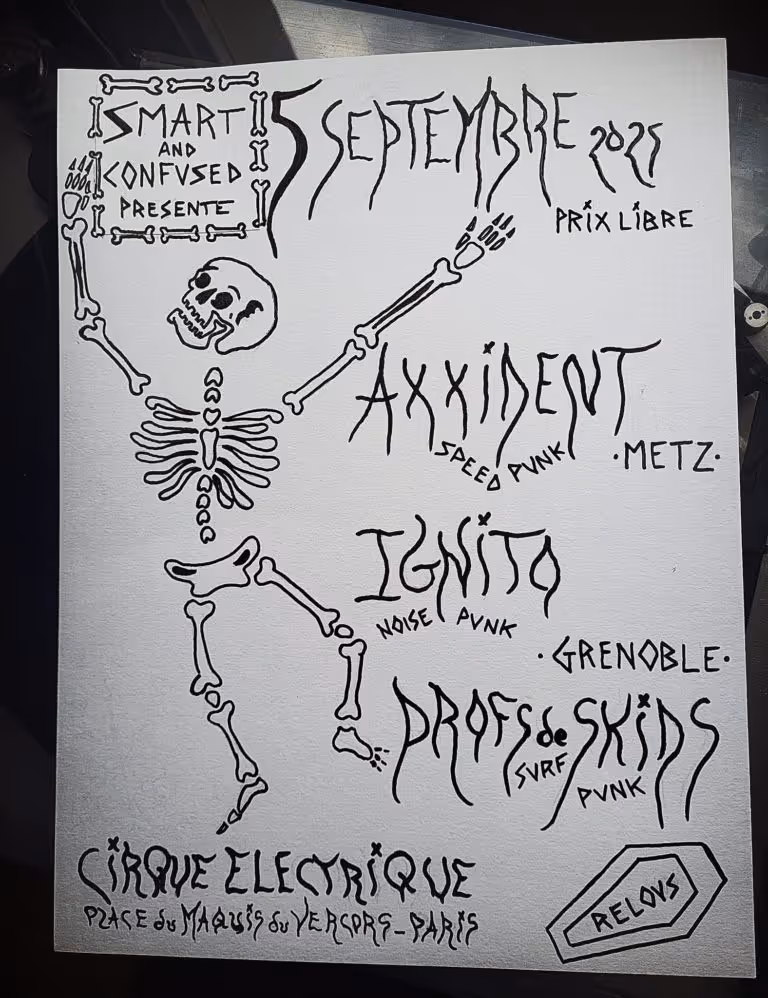 SMART
AND
CONFUSED
PRESENTE
5 SEPTEMBRE 2025
PRIX LIBRE
AXXIDENT
SPEED PUNK
·METZ·
IGNITO
NOISE PUNK
·GRENOBLE·
PROFS de SKIDS
SURF PUNK
CIRQUE ELECTRIQUE
PLACE du MAQUIS du VERCORS-PARIS
RELOUS